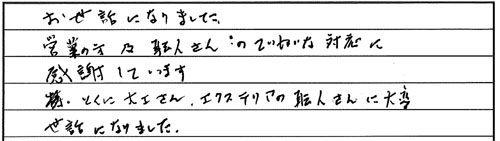 お世話になりました。
営業の方及職人さん のていねいな対応に
感謝しています
様、とくに大工さん、エクステリアの職人さんに大変
世話になりました。